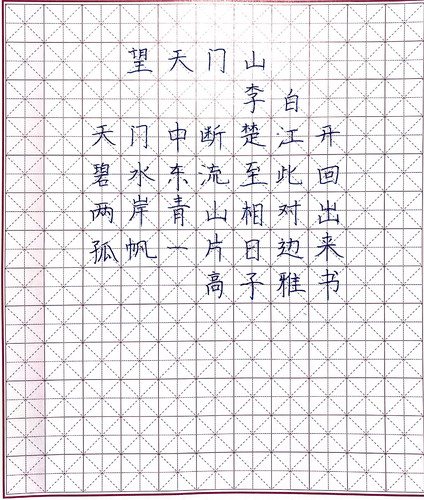 望天门山
李白
天门中断楚江开
碧水东流至此回
两岸青山相对出
孤帆一片日边来
高子雅书